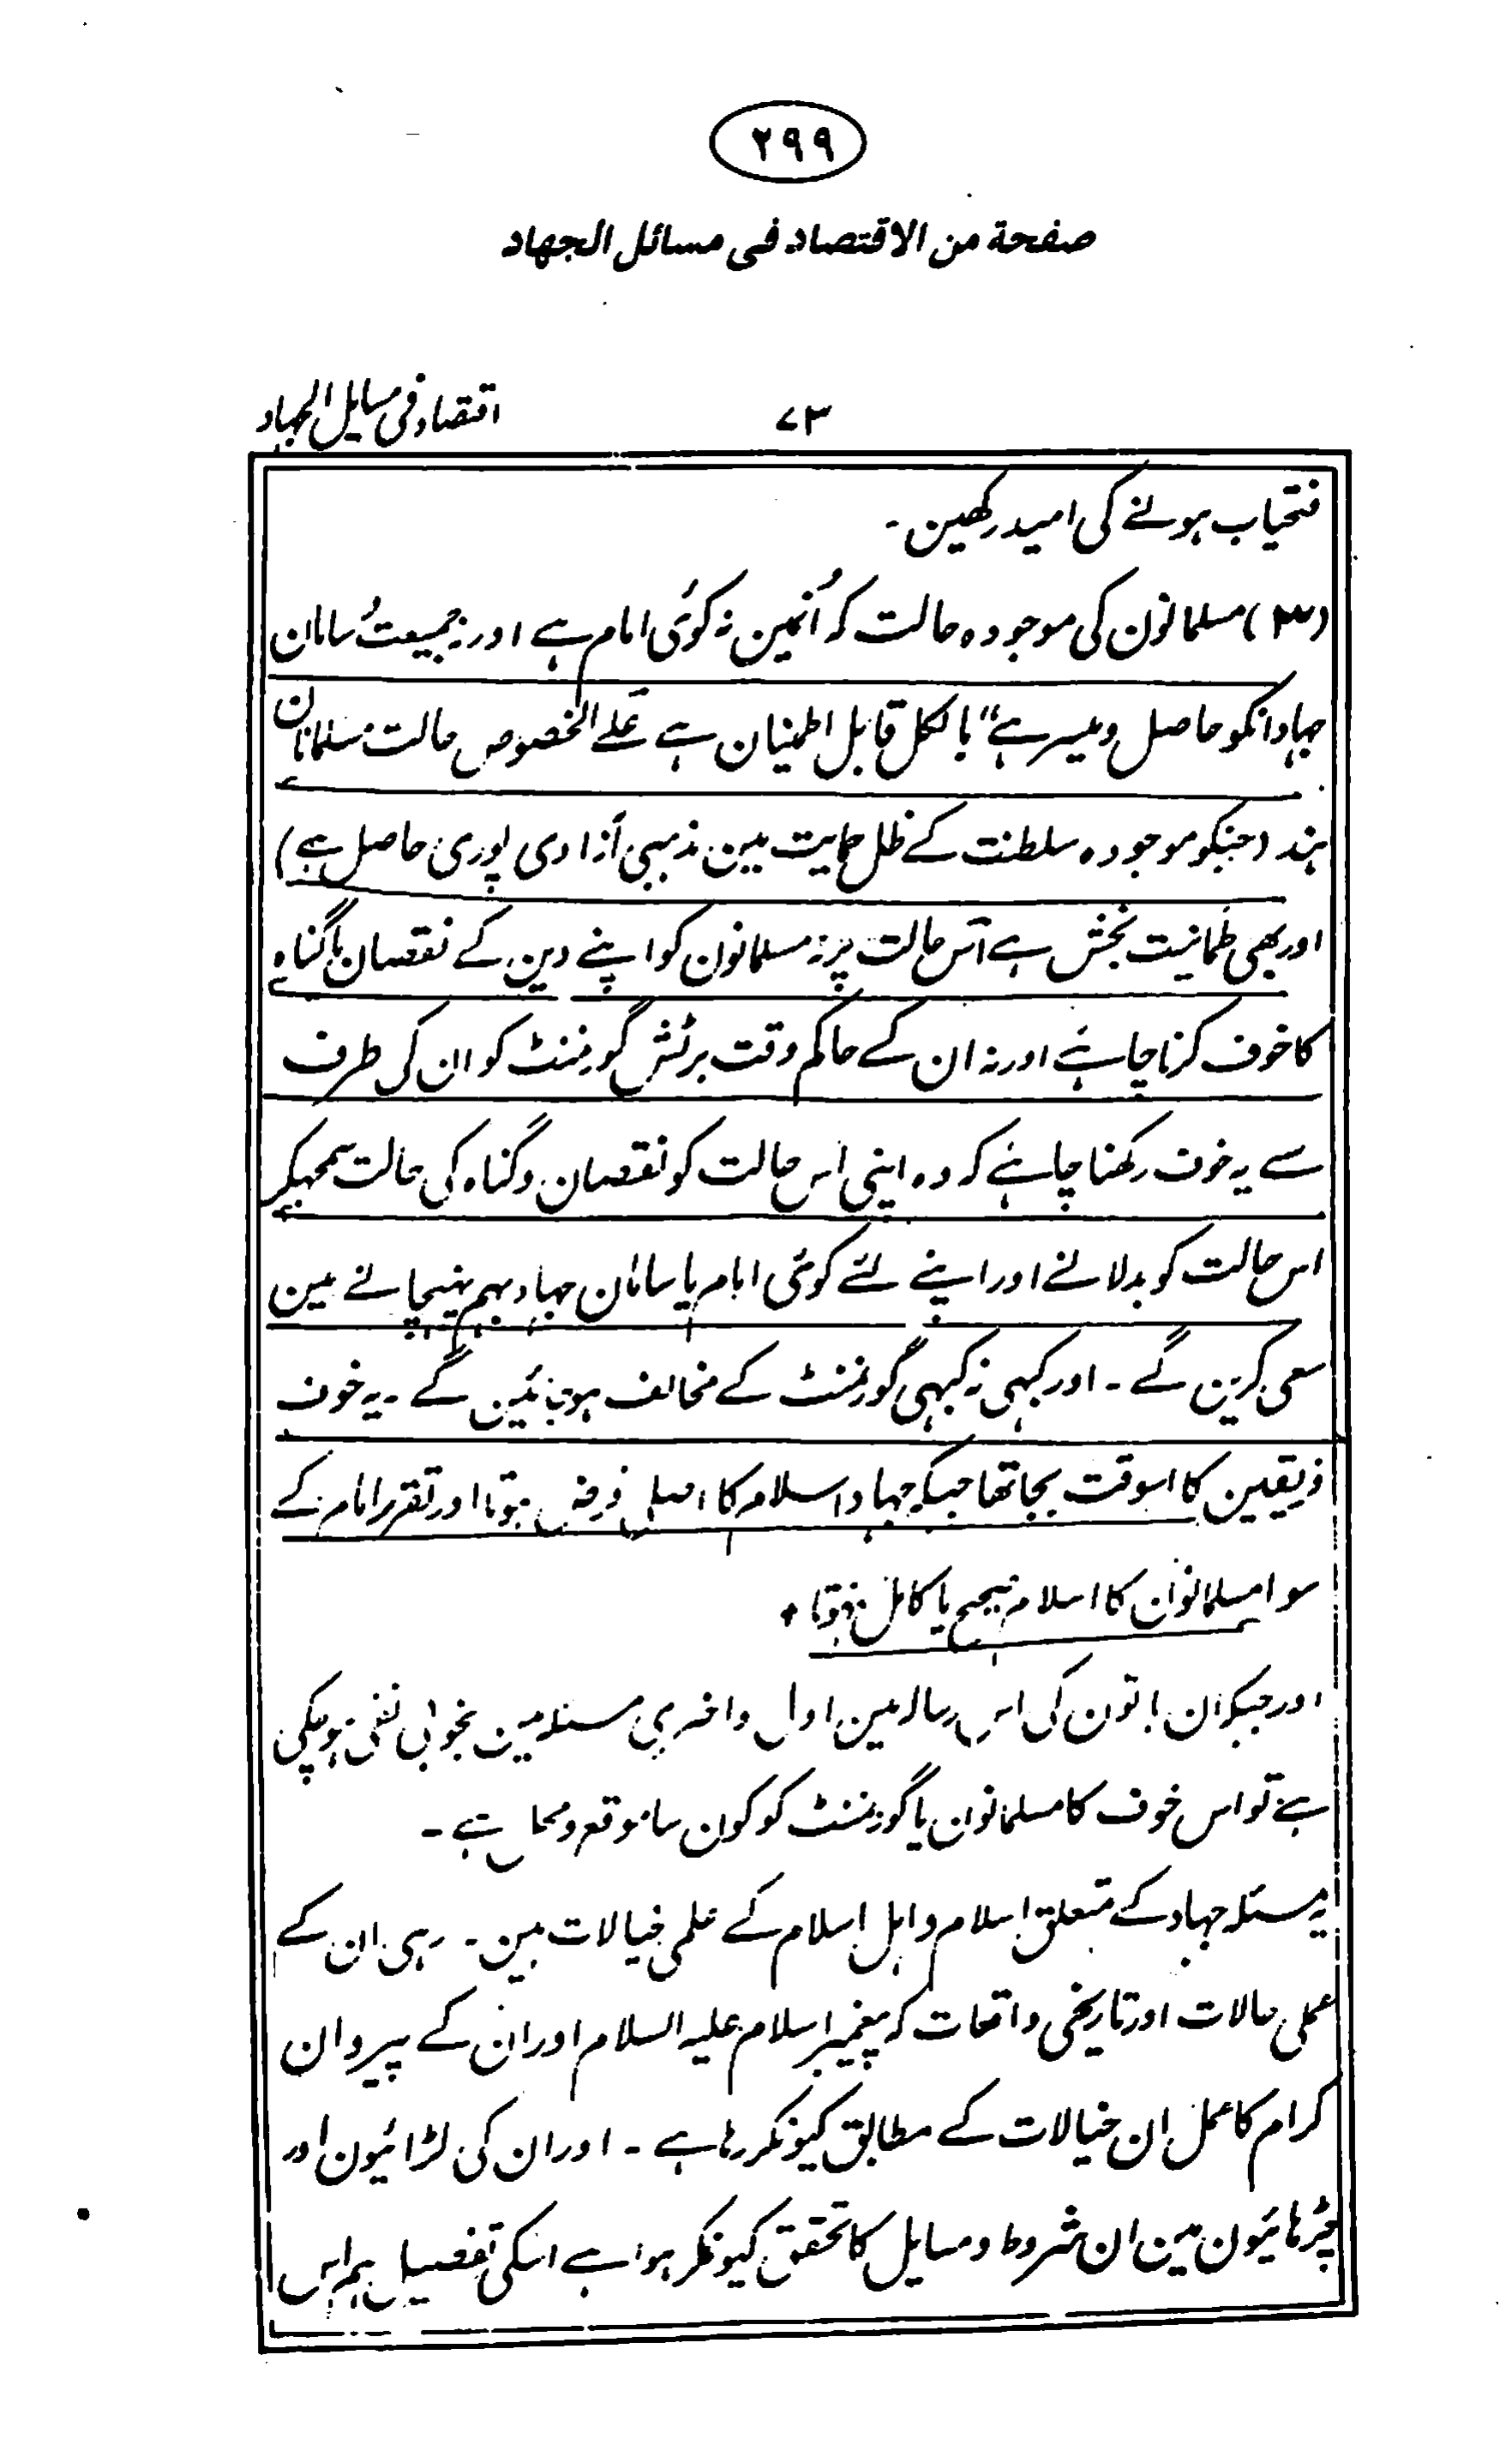 ٢٩٩
صفحة من الاقتصاد فى مسائل الجهاد
اقتصاد فی مسایل الجہاد
۷۳
فتحیاب ہونے کی امید رکھین۔
(۳) مسلمانون کی موجودہ حالت کہ اُنمین نہ کوئی امام ہے اور نہ جمیعت و سامان
جہاد انکو حاصل و میسر ہے" بالکل قابل اطمنیان ہے علے الخصوص حالت مسلمانان
ہند (جنکو موجودہ سلطنت کے ظل حمایت مین مذہبی آزادی پوری حاصل ہے)
اور بھی طمانیت بخش ہے اس حالت پر نہ مسلمانون کو اپنے دین کے نقصان یا گناہ
کا خوف کرنا چاہئے اور نہ ان کے حاکم وقت برٹش گورنمنٹ کو ان کی طرف
سے یہ خوف رکھنا چاہئے کہ وہ اپنی اس حالت کو نقصان و گناہ کی حالت سمجہکر
اس حالت کو بدلانے اور اپنے لئے کوئی امام یا سامان جہاد بہم پہنچانے مین
سعی کرین گے۔ اور کبہی نہ کبہی گورنمنٹ کے مخالف ہوجائین گے۔ یہ خوف
فریقین کا اسوقت بجا تھا جبکہ جہاد اسلام کا اصلی فرض ہوتا اور تقرر امام کے
سوا مسلمانون کا اسلام صحیح یا کامل نہوتا +
اور جبکہ ان باتون کی اس رسالہ مین اول و اخیری مسئلہ مین بخوبی نفی ہو چکی
ہے تو اس خوف کا مسلمانون یا گورنمنٹ کو کون سا موقع و محل ہے۔
یہ مسئلہ جہاد کے متعلق اسلام و اہل اسلام کے علمی خیالات ہین۔ رہی ان کے
عملی حالات اور تاریخی واقعات کہ پیغمبر اسلام علیہ السلام اور ان کے پیروان
کرام کا عمل ان خیالات کے مطابق کیونکر رہا ہے۔ اور ان کی لڑائیون اور
چڑہائیون مین ان شروط و مسایل کا تحقق کیونکر ہوا ہے اسکی تفصیل ہم اس